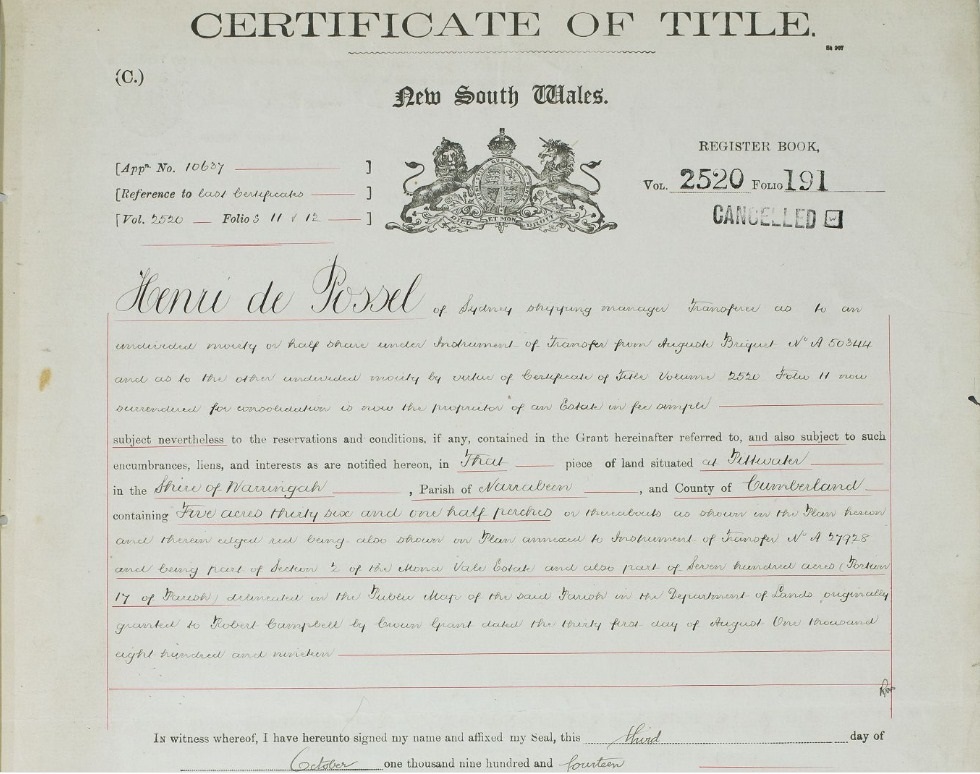 CERTIFICATE OF TITLE.
(C.)
New South Wales.
[Appn. No. 10637 ]
[Reference to last Certificates ]
[Vol. 2520 Folios 11 & 12 ]
REGISTER BOOK,
VOL. 2520 FOLIO 191
CANCELLED
DIEU ET MON DROIT
Henri de Possel of Sydney shipping manager Transferee as to an
undivided moiety or half share under Instrument of Transfer from August Briquet No A 50344
and as to the other undivided moiety by virtue of Certificate of Title Volume 2520 Folio 11 now
surrendered for consolidation is now the proprietor of an Estate in fee simple
subject nevertheless to the reservations and conditions, if any, contained in the Grant hereinafter referred to, and also subject to such
encumbrances, liens, and interests as are notified hereon, in That piece of land situated at Pittwater
in the Shire of Warringah , Parish of Narrabeen , and County of Cumberland
containing Five acres thirty six and one half perches or thereabouts as shown in the Plan hereon
and therein edged red being also shown on Plan annexed to Instrument of Transfer No A 27928
and being part of Section 2 of the Mona Vale Estate and also part of Seven hundred acres (Portion
17 of Parish) delineated in the Public Map of the said Parish in the Department of Lands originally
granted to Robert Campbell by Crown Grant dated the thirty first day of August One thousand
eight hundred and nineteen
In witness whereof, I have hereunto signed my name and affixed my Seal, this third day of
October one thousand nine hundred and fourteen